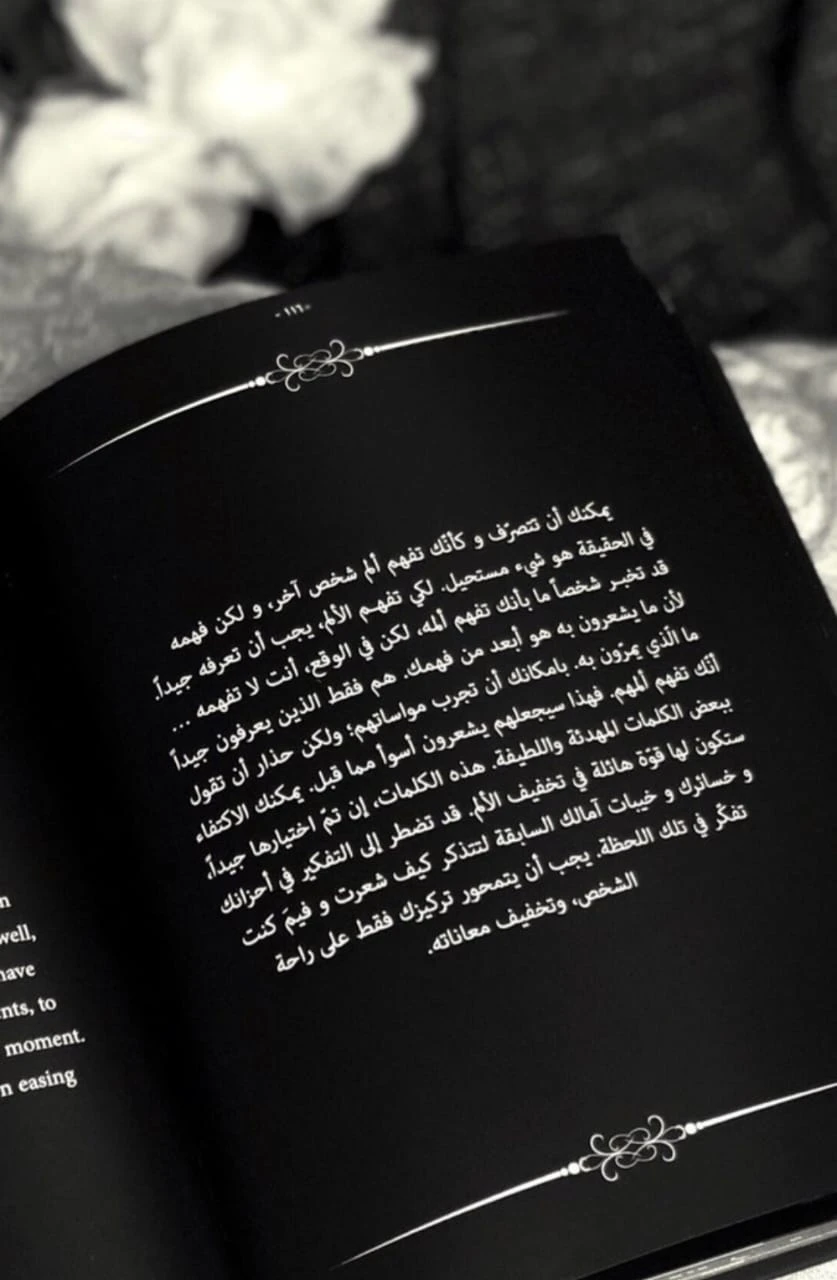 يمكنك أن تتصرّف و كأنّك تفهم ألم شخص آخر، و لكن فهمه
في الحقيقة هو شيء مستحيل. لكي تفهم الألم، يجب أن تعرفه جيداً.
قد تخبر شخصاً ما بأنك تفهم ألمه، لكن في الوقع، أنت لا تفهمه ...
لأن ما يشعرون به هو أبعد من فهمك. هم فقط الذين يعرفون جيداً
ما الّذي يمرّون به. بامكانك أن تجرب مواساتهم؛ ولكن حذار أن تقول
أنّك تفهم ألمهم. فهذا سيجعلهم يشعرون أسوأ مما قبل. يمكنك الاكتفاء
ببعض الكلمات المهدئة واللطيفة. هذه الكلمات، إن تمّ اختيارها جيداً،
ستكون لها قوّة هائلة في تخفيف الألم. قد تضطر إلى التفكير في أحزانك
و خسائرك و خيبات آمالك السابقة لتتذكر كيف شعرت و فيمَ كنت
تفكّر في تلك اللحظة. يجب أن يتمحور تركيزك فقط على راحة
الشخص، وتخفيف معاناته.
well,
have
to
moment.
easing